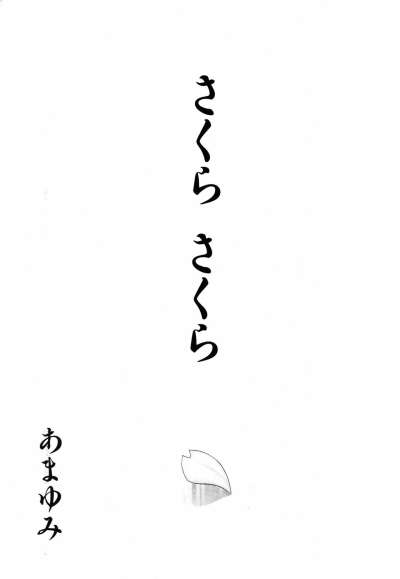 さくら さくら
あまゆみ